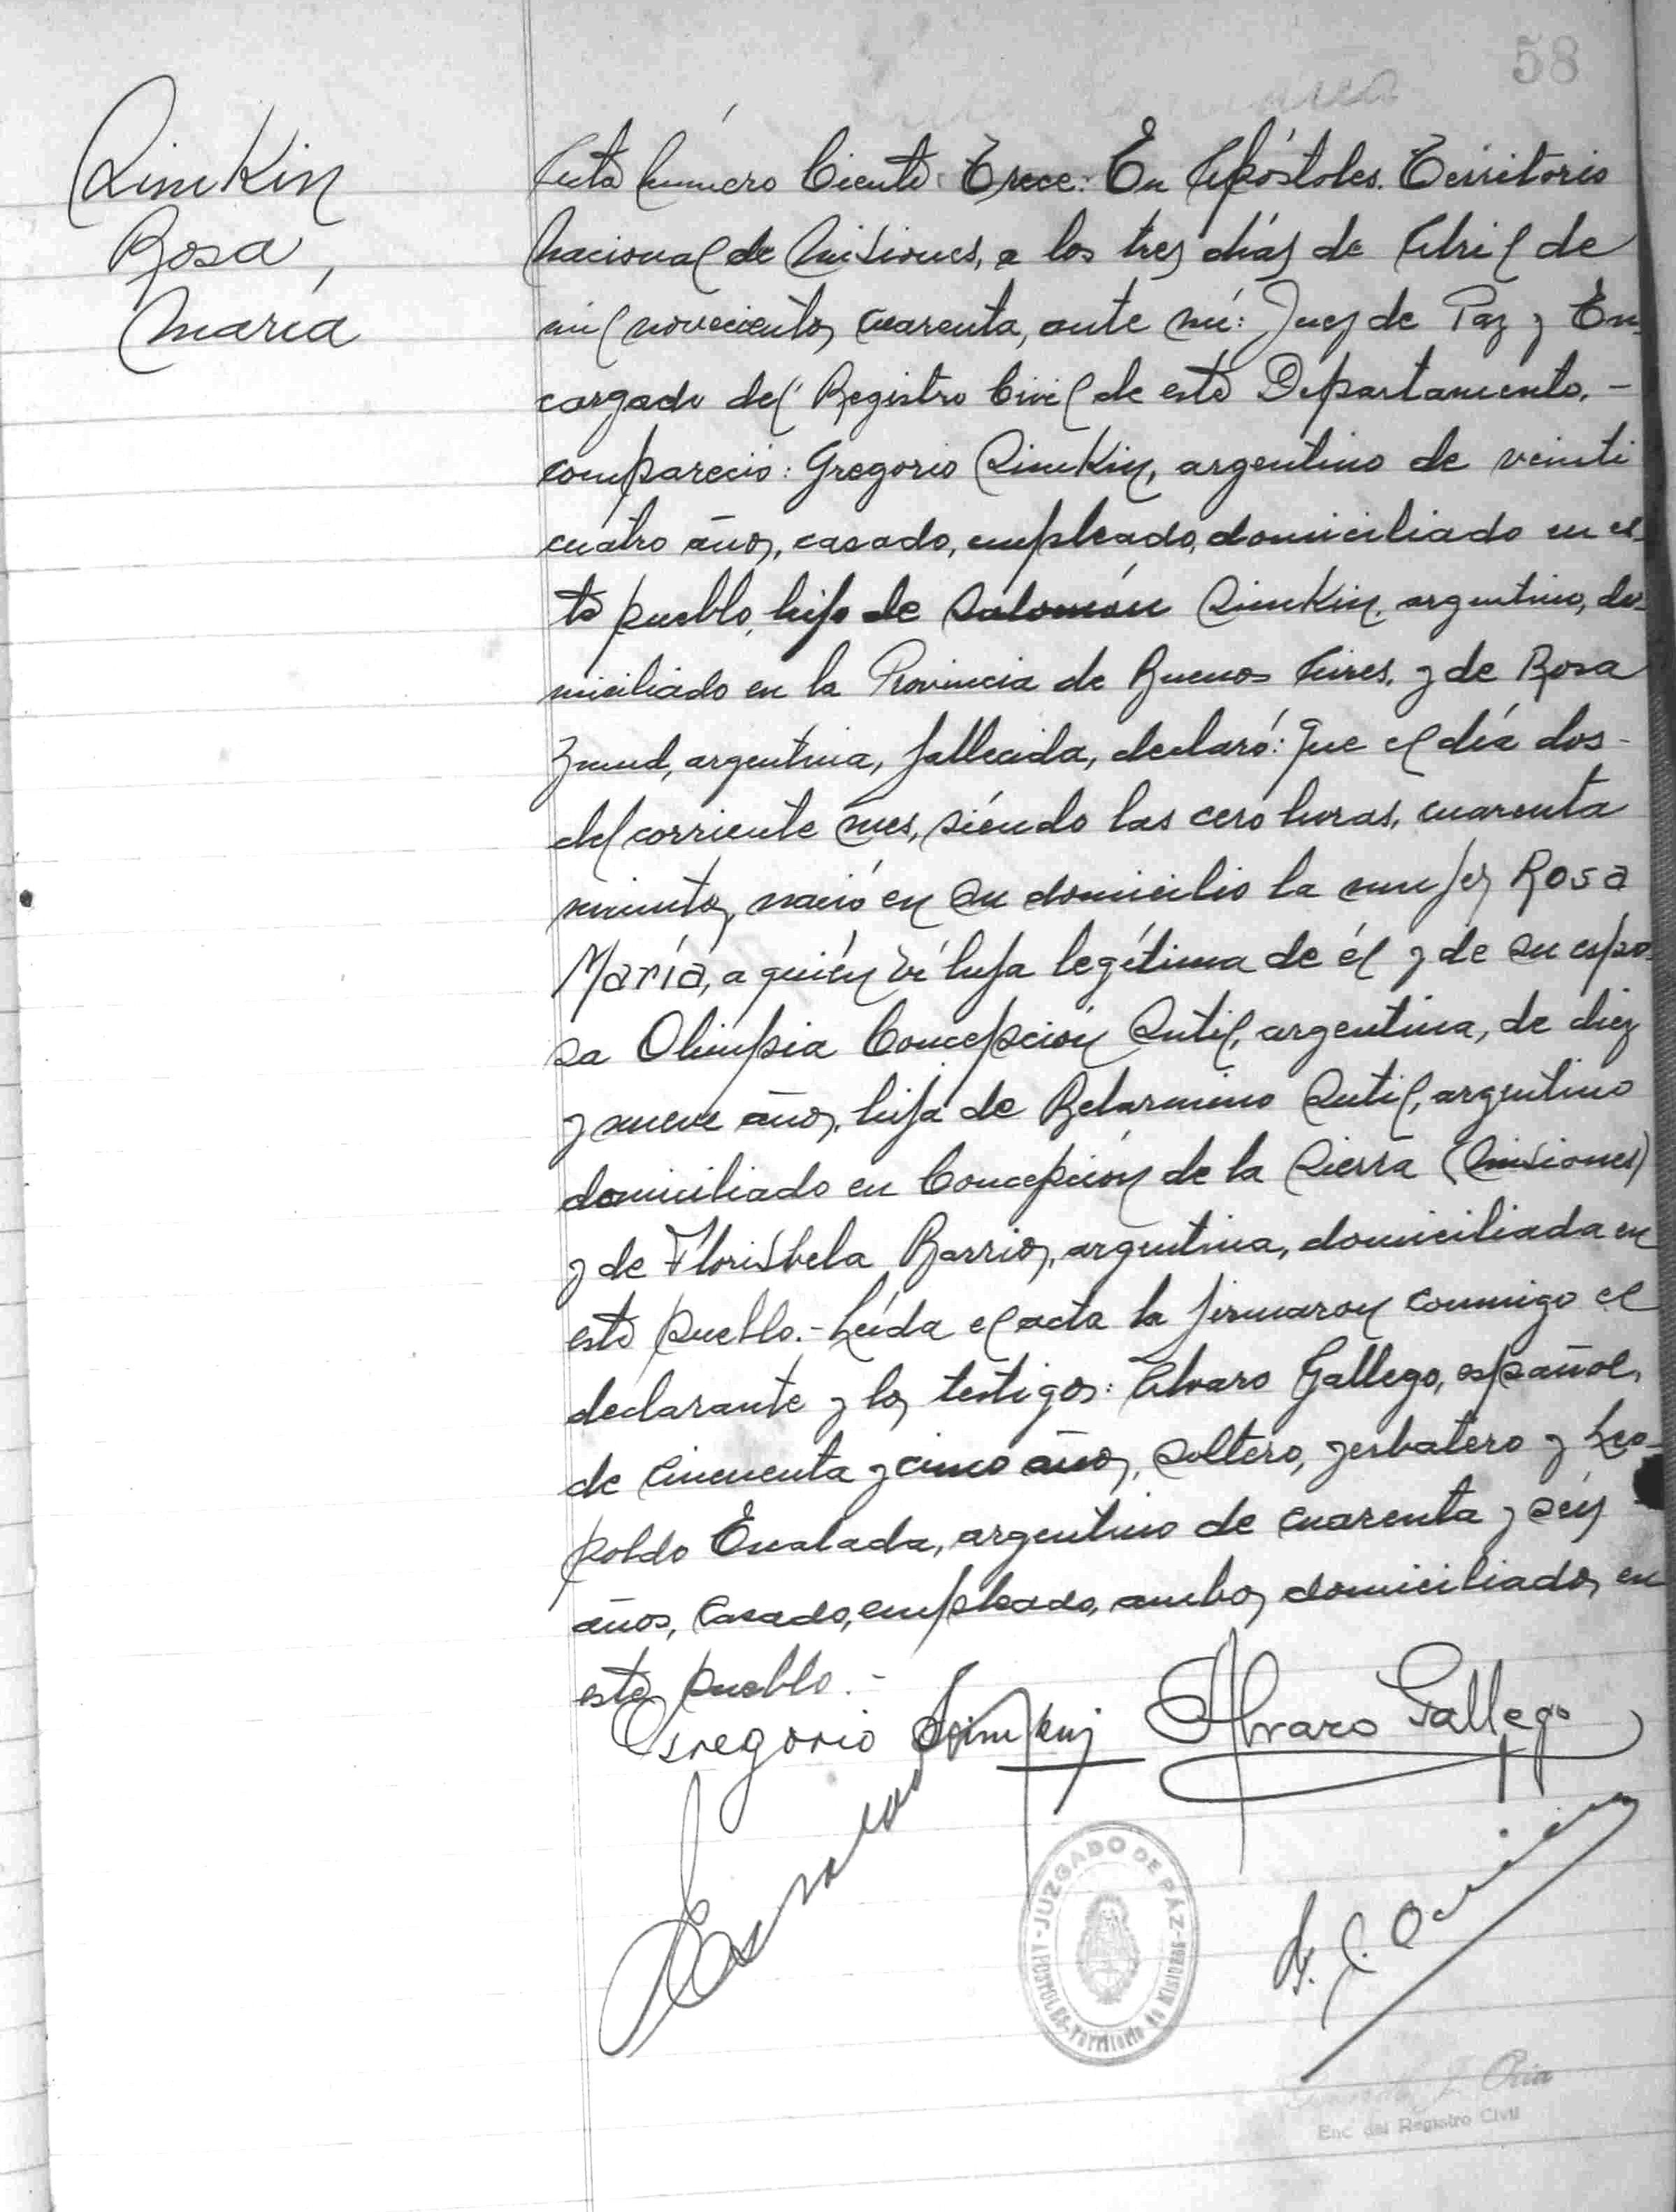 58
Simkin
Rosa
María
Acta número Ciento Trece: En Apóstoles. Territorio
Nacional de Misiones, a los tres días de Abril de
mil novecientos cuarenta, ante mí: Juez de Paz y En-
cargado del Registro Civil de este Departamento. -
compareció: Gregorio Simkin, argentino de veinti
cuatro años, casado, empleado, domiciliado en es-
te pueblo, hijo de Salomón Simkin, argentino, do-
miciliado en la Provincia de Buenos Aires, y de Rosa
Zmud, argentina, fallecida, declaró: Que el día dos -
del corriente mes, siéndo las cero horas, cuarenta
minutos, nació en su domicilio la mujer Rosa
María, a quién ví hija legítima de él y de su espo-
sa Olimpia Concepción Sutil, argentina, de diez
y nueve años, hija de Belarmino Sutil, argentino
domiciliado en Concepción de la Sierra (Misiones)
y de Florisbela Barrios, argentina, domiciliada en
este pueblo. - Leída el acta la firmaron conmigo el
declarante y los testigos: Alvaro Gallego, español,
de cincuenta y cinco años, soltero, yerbatero y Leo-
poldo Ensalada, argentino de cuarenta y séis
años, casado, empleado, ambos domiciliados en
este pueblo. -
Gregorio Simkin Alvaro Gallego
JUZGADO DE PÁZ - APOSTOLES - Territorio de Misiones
J. Oria
Enc del Registro Civil